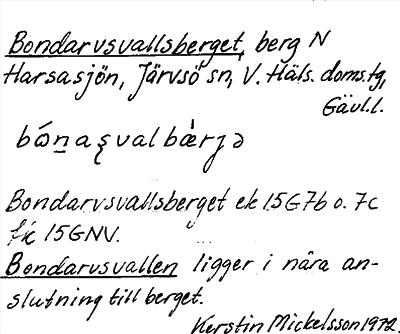 Bondarvsvallsberget, berg N
Harsasjön, Järvsö sn, V. Häls. doms.tg,
Gävl.l.
bɷ́n̲aʂvalbæ̀rɟə
Bondarvsvallsberget ek 15G7b o. 7c
fik 15GNV.
Bondarvsvallen ligger i nära an-
slutning till berget.
Kerstin Mickelsson 1972.